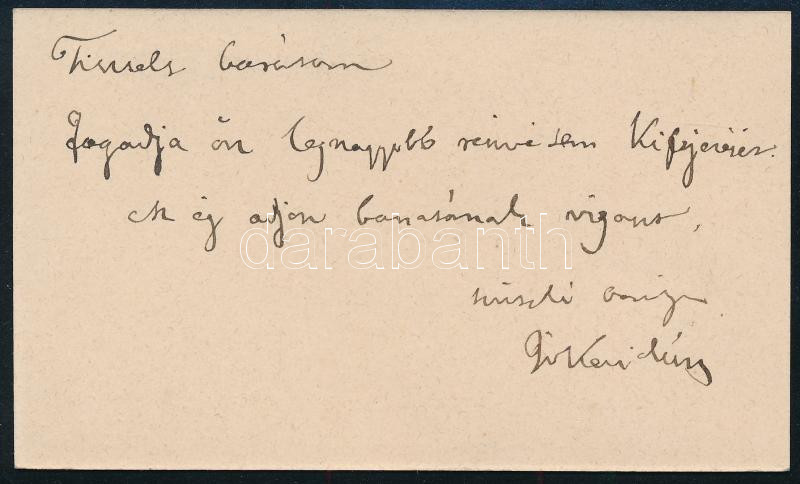 Tisztelt barátom
Fogadja ön legnagyobb részvétem Kifejezését.
Az ég adjon bánatának vigaszt,
darabanth
barátja
Jókai Mór